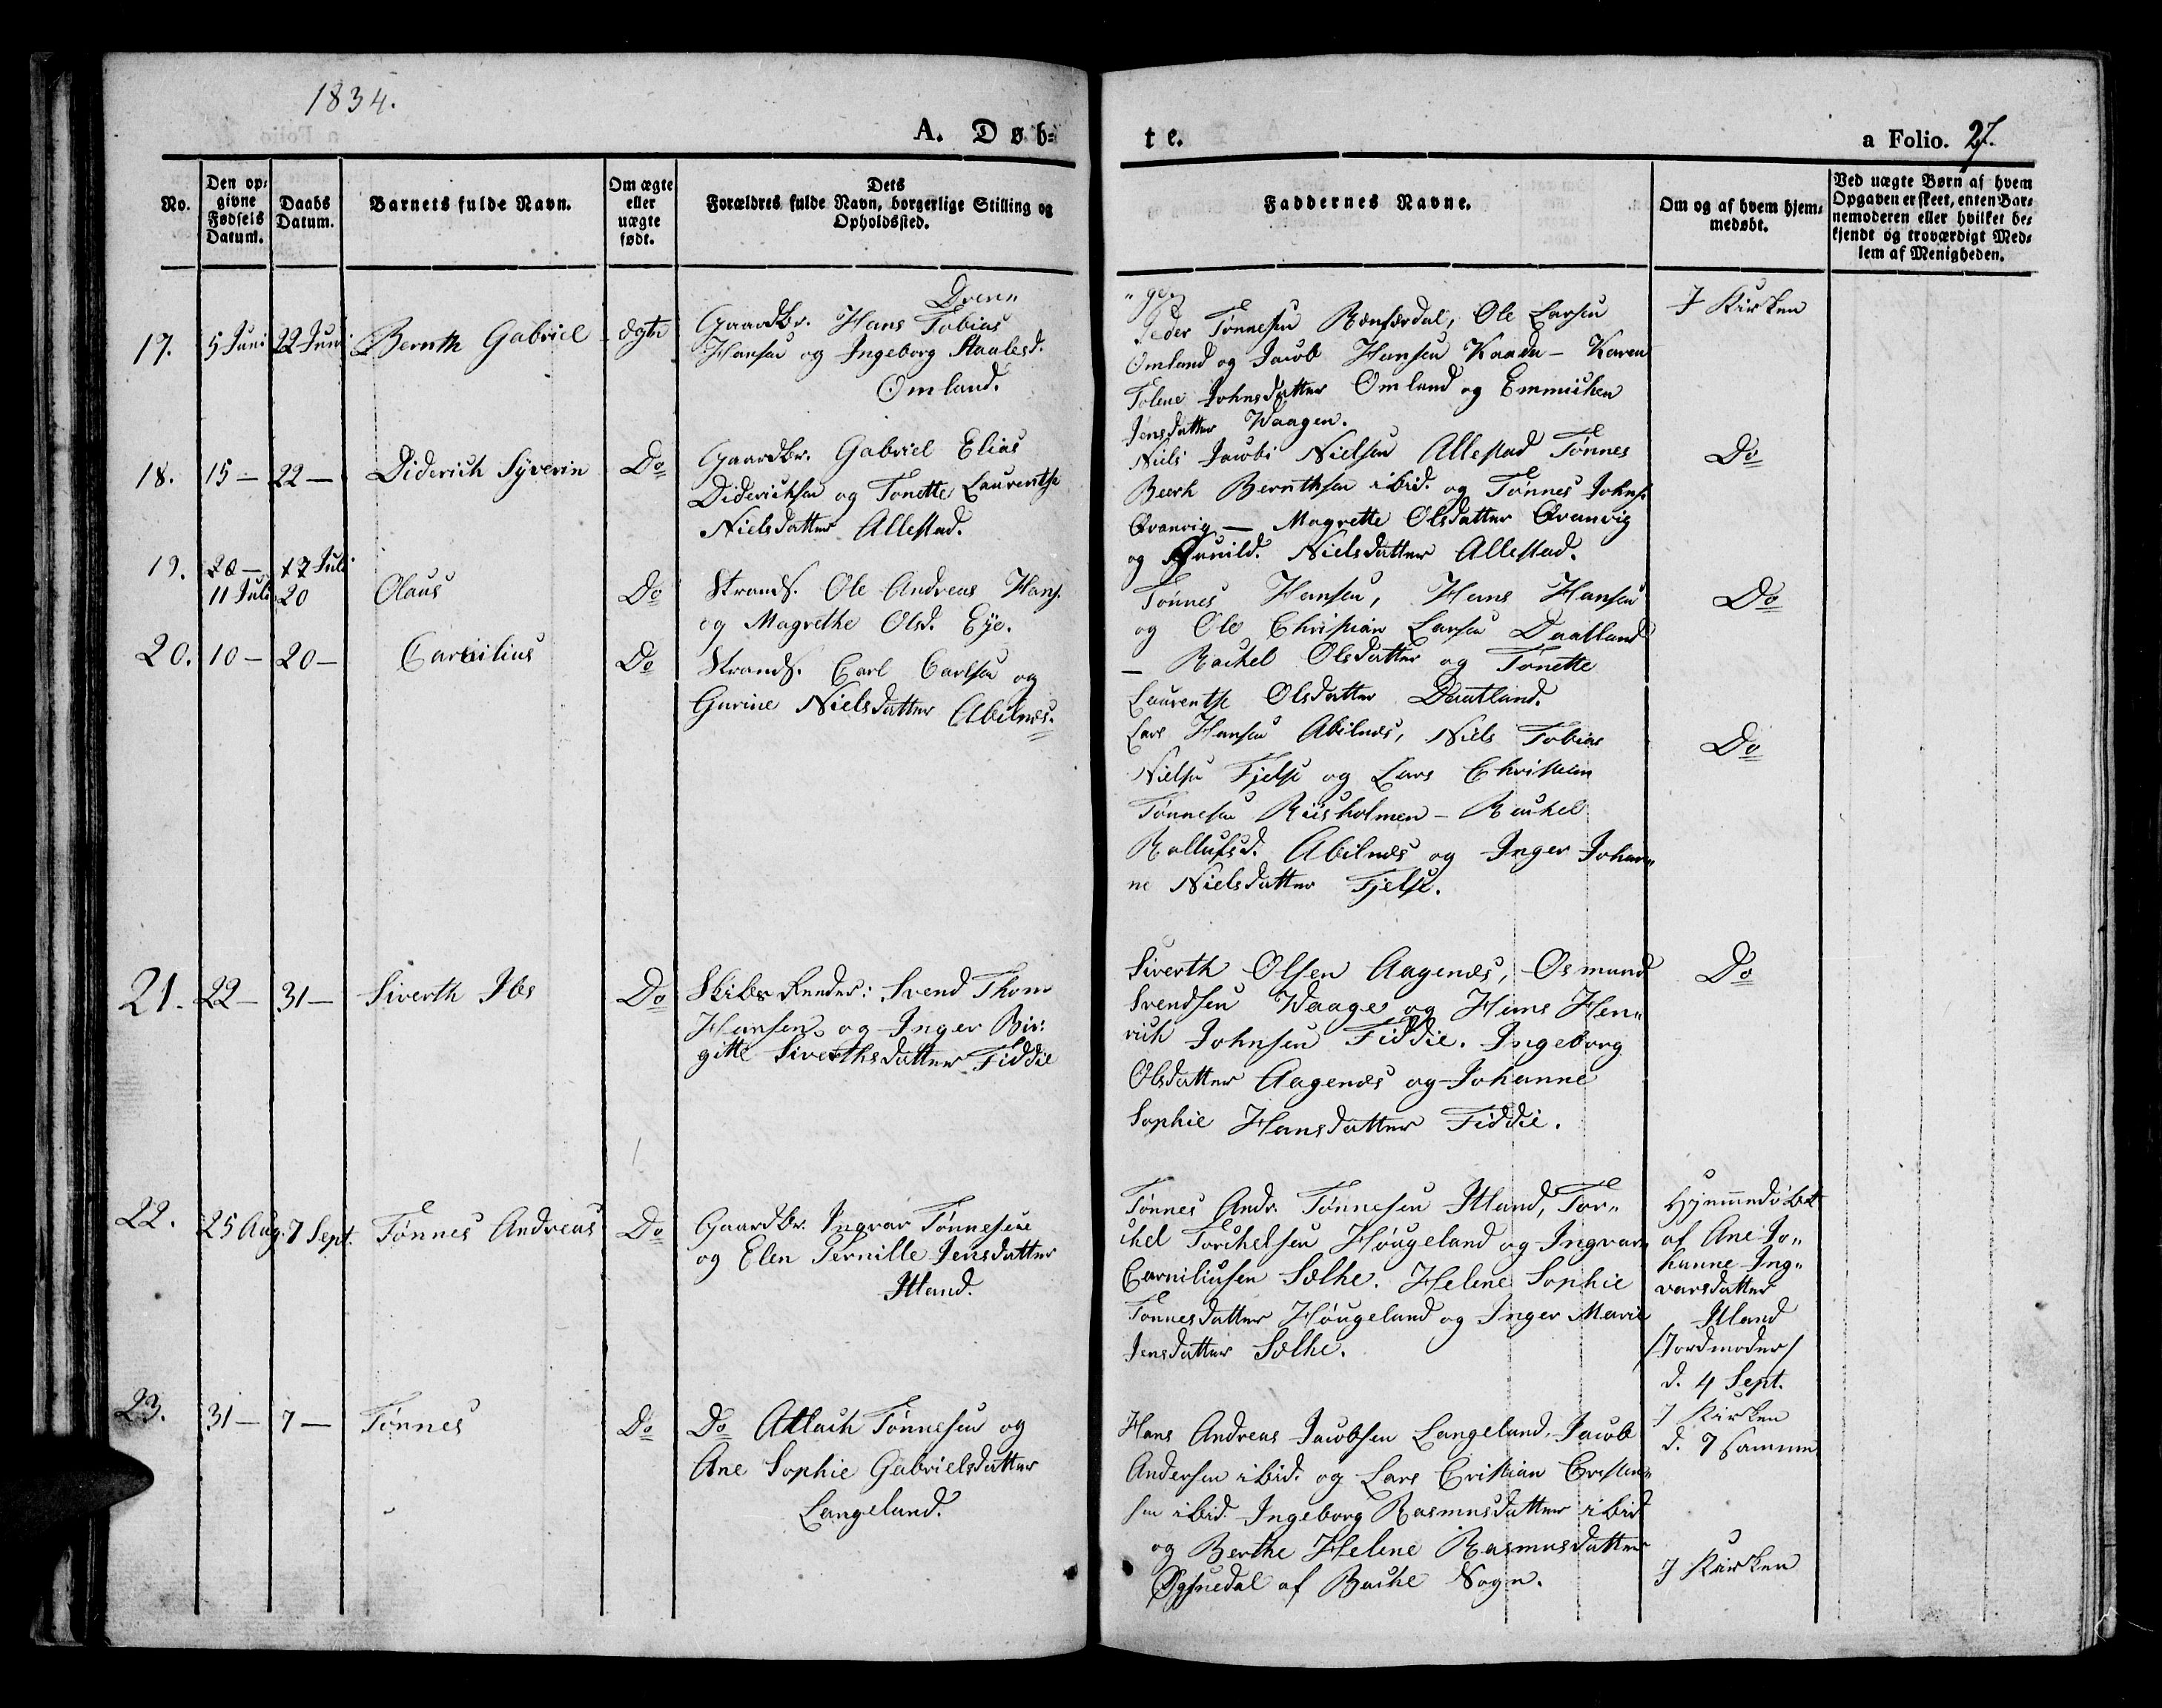 1834.
A. Døb=
te.
a Folio. 27.
No.
Den op=
givne
Fødsels
Datum.
Daabs
Datum.
Barnets fulde Navn.
Om ægte
eller
uægte
født.
Dets
Forældres fulde Navn, borgerlige Stilling og
Opholdssted.
Faddernes Navne.
Om og af hvem hjem=
medøbt.
Ved uægte Børn af hvem
Opgaven er skeet, enten Bar=
nemoderen eller hvilket be=
kjendt og troværdigt Med=
lem af Menigheden.
17. 5 Juni 22 Juni Bernth Gabriel ægte
Gaardbr. Hans Tobias
Hansen og Ingeborg Staalesd.
Omland.
Peder Tønnesen Ole Larsen
Omland og Jacob Hansen Kaada – Karen
Tolene Johnsdatter Omland og Emmichen
Jensdatter Waagen.
I Kirken
18. 15 – 22 – Diderich Syverin Do
Gaardbr. Gabriel Elias
Diderichsen og Tonette Laurentse
Nielsdatter Allestad.
Niels Jacobi Nielsen Allestad Tønnes
Beerh Bernthsen ibid. og Tønnes Johns.
Qvanvig – Magrette Olsdatter Qvanvig
og Gunild. Nielsdatter Allestad.
Do
19. 20 – 17 Juli
11 Juli 20 Olaus Do
Strands. Ole Andreas Hans.
og Magrethe Olsd. Eye.
Tönnes Hansen, Hans Hansen
og Ole Christian Larsen Daatland
– Rachel Olsdatter og Tønette
Laurentse Olsdatter Daatland.
Do
20. 10 – 20 – Carnilius Do
Strands. Carl Carlsen og
Gurine Nielsdatter Abilnæs.
Lars Hansen Abilnæs, Niels Tobias
Nielsen Fjelse og Lars Christian
Tønnesen Riisholmen – Rachel
Rollufsd. Abilnæs og Inger Johan„
ne Nielsdatter Fjelse.
Do
21. 22 – 31 – Siverth Ibs Do
Skibs Reeder: Svend Thom
Hansen og Inger Bir:
gitte Siverthsdatter Fiddie
Siverth Olsen Aagenæs, Osmund
Svendsen Waage og Hans Hen„
rich Johnsen Fiddie. Ingeborg
Olsdatter Aagenæs og Johanne
Sophie Hansdatter Fiddie.
Do
22. 25 Aug. 7 Sept. Tønnes Andreas Do
Gaardbr. Ingvar Tønnesen
og Elen Pernille Jensdatter
Itland.
Tønnes Andr. Tønnesen Itland, Tor„
chel Torchelsen Høugeland og Ingvar
Carniliusen Sælhe. Helene Sophie
Tønnesdatter Høugeland og Inger Marie
Jensdatter Sælhe.
Hjemmedøbt
af Ane Jo„
hanne Ing„
varsdatter
Itland
/Jordmoder/
d. 4 Sept.
I Kirken
d. 7 samme
23. 31 – 7 – Tønnes Do
Do Atlach Tønnesen og
Ane Sophie Gabrielsdatter
Langeland.
Hans Andreas Jacobsen Langeland, Jacob
Andersen ibid. og Lars Cristian Cristen„
sen ibid. Ingeborg Rasmusdatter ibid
og Berthe Helene Rasmusdatter
af Bache Sogn.
I Kirken